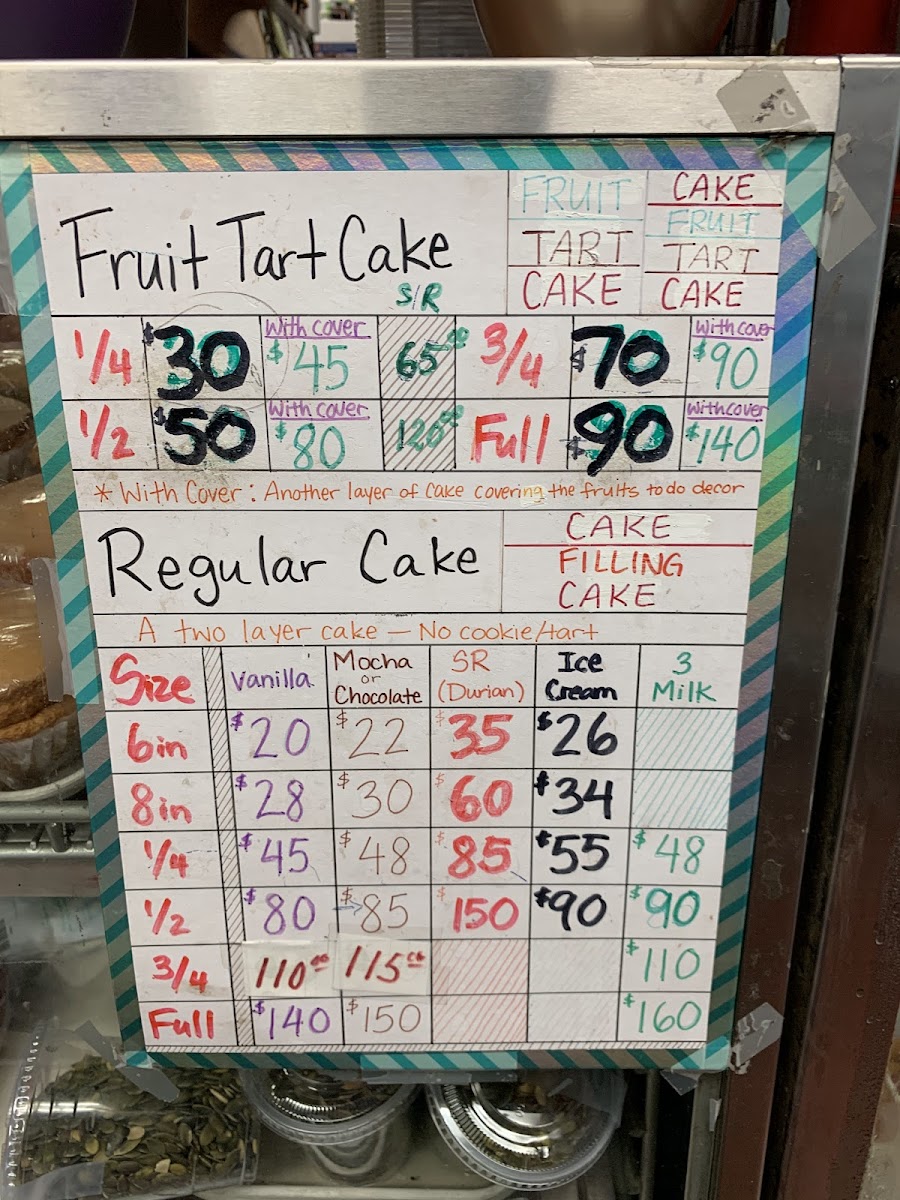 Fruit Tart Cake
S/R
FRUIT
TART
CAKE
CAKE
FRUIT
TART
CAKE
1/4 $30 With cover $45 65.00 3/4 $70 With cover $90
1/2 $50 With cover $80 120.00 Full $90 With cover $140
* With Cover : Another layer of cake covering the fruits to do decor
Regular Cake
CAKE
FILLING
CAKE
A two layer cake – No cookie/tart
Size Vanilla Mocha or Chocolate SR (Durian) Ice Cream 3 Milk
6in $20 $22 $35 $26
8in $28 $30 $60 $34
1/4 $45 $48 $85 $55 $48
1/2 $80 $85 $150 $90 $90
3/4 110.00 115.00 $110
Full $140 $150 $160